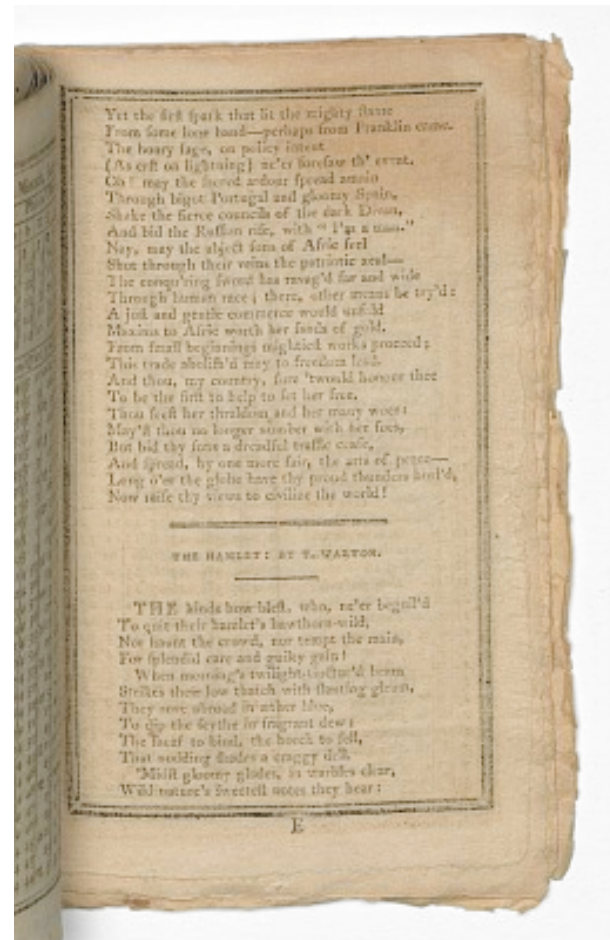 Yet the first spark that lit the mighty flame
From some lone hand—perhaps from Franklin came.
The hoary sage, on policy intent
(As erst on lightning) ne'er foresaw th' event.
Oh! may the sacred ardour spread amain
Through bigot Portugal and gloomy Spain,
Shake the fierce councils of the dark Divan,
And bid the Russian rise, with "I'm a man."
Nay, may the abject sons of Afric feel
Shot through their veins the patriotic zeal—
The conqu'ring sword has ravag'd far and wide
Through human race; there, other means be try'd:
A just and gentle commerce would unfold
Maxims to Afric worth her sands of gold.
From small beginnings mightiest works proceed;
This trade abolish'd may to freedom lead.
And thou, my country, sure 'twould honour thee
To be the first to help to set her free.
Thou seest her thraldom and her many woes:
May'st thou no longer number with her foes,
But bid thy sons a dreadful traffic cease,
And spread, by one more fair, the arts of peace—
Long o'er the globe have thy proud thunders hurl'd,
Now raise thy views to civilize the world!
THE HAMLET: BY T. WARTON.
THE hinds how blest, who, ne'er beguil'd
To quit their hamlet's hawthorn-wild,
Nor haunt the crowd, nor tempt the main,
For splendid care and guilty gain!
When morning's twilight-tinctur'd beam
Strikes their low thatch with slanting gleam,
They rove abroad in ether blue,
To dip the scythe in fragrant dew:
The sheaf to bind, the beech to fell,
That nodding shades a craggy dell.
'Midst gloomy glades, in warbles clear,
Wild nature's sweetest notes they hear:
E